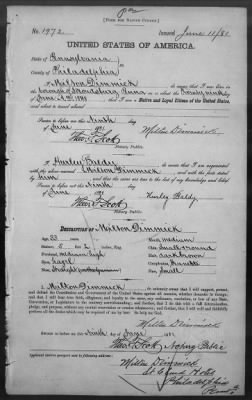 [FORM FOR NATIVE CITIZEN.]
No. 1972
Issued June 11/81
UNITED STATES OF AMERICA.
State of Pennsylvania
County of Philadelphia
I Milton Dimmick
born in the
on or about the
June
that I am a Native and Loyal Citizen of the United States,
and about to travel abroad.
Sworn to before me this Ninth
day of June 1881
Milton Dimmick
Notary Public.
I Hurley Baldy
acquainted with the above-named Milton Dimmick, and with the facts stated
to the best of my knowledge and belief.
Sworn to before me this Ninth
day of June
Hurley Baldy
Notary Public.
DESCRIPTION OF Milton Dimmick
Age: 33
Mouth: medium
Stature: 5
Chin: Small & round
Forehead: medium high
Hair: dark brown
Eyes: Hazel
Complexion: Brunette
Nose:
Face: Small
I Milton Dimmick do solemnly swear that I will support, protect,
and defend the Constitution and Government of the United States against all enemies, whether domestic or foreign; and
that I will bear true faith, allegiance, and loyalty to the same, any ordinance, resolution, or law of any State,
Convention, or Legislature to the contrary notwithstanding; and further, that I do this with a full determination,
pledge, and purpose, without any mental reservation or evasion whatsoever; and further, that I will well and faithfully
perform all the duties which may be required of me by law: So help me God.
Milton Dimmick
Sworn to before me this Ninth day of June 1881
Notary Public
Milton Dimmick
Philadelphia